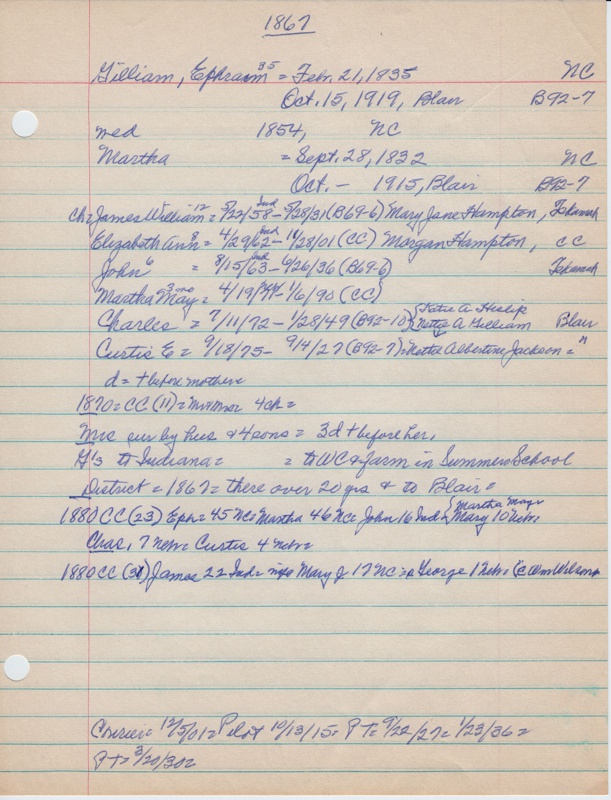 1867
Gilliam, Ephraim 35 = Feb. 21, 1835 NC
Oct. 15, 1919, Blair B92-7
med 1854, NC
Martha = Sept. 28, 1832 NC
Oct. - 1915, Blair B92-7
ch= James William 12 = 5/22/58 Ind - 5/28/31 (B69-6) Mary Jane Hampton, Tekamah
Elizabeth Ann 8 = 4/29/62 Ind - 11/28/01 (CC) Morgan Hampton, CC
John 6 = 8/15/63 Ind - 6/26/36 (B69-6) Tekamah
Martha May 3 mo = 4/19/ - 1/6/90 (CC)
Charles = 7/11/72 - 1/28/49 (B92-10) { A Heslip Nettie A Gilliam Blair
Curtis E = 9/18/75 - 9/4/27 (B92-7) = Nettie Albertine Jackson = "
d = + before mother =
1870 = CC (11) = 4 ch =
Mrs sur by hus & 4 sons = 3 d + before her,
G's to Indiana = = to WC & farm in Summers School
District = 1867 = there over 20 yrs & to Blair =
1880 CC (23) Eph = 45 NC = Martha 46 NC = John 16 Ind { Martha May Mary 10 Neb =
Chas, 7 Neb = Curtis 4 Neb =
1880 CC (31) James 22 Ind = Mary J 17 NC = George 1 Neb = (c Wm Wilson
Courier = 12/5/01 = Pilot 10/13/15 = PT = 9/22/27 = 1/23/36 =
PT = 3/20/30 =